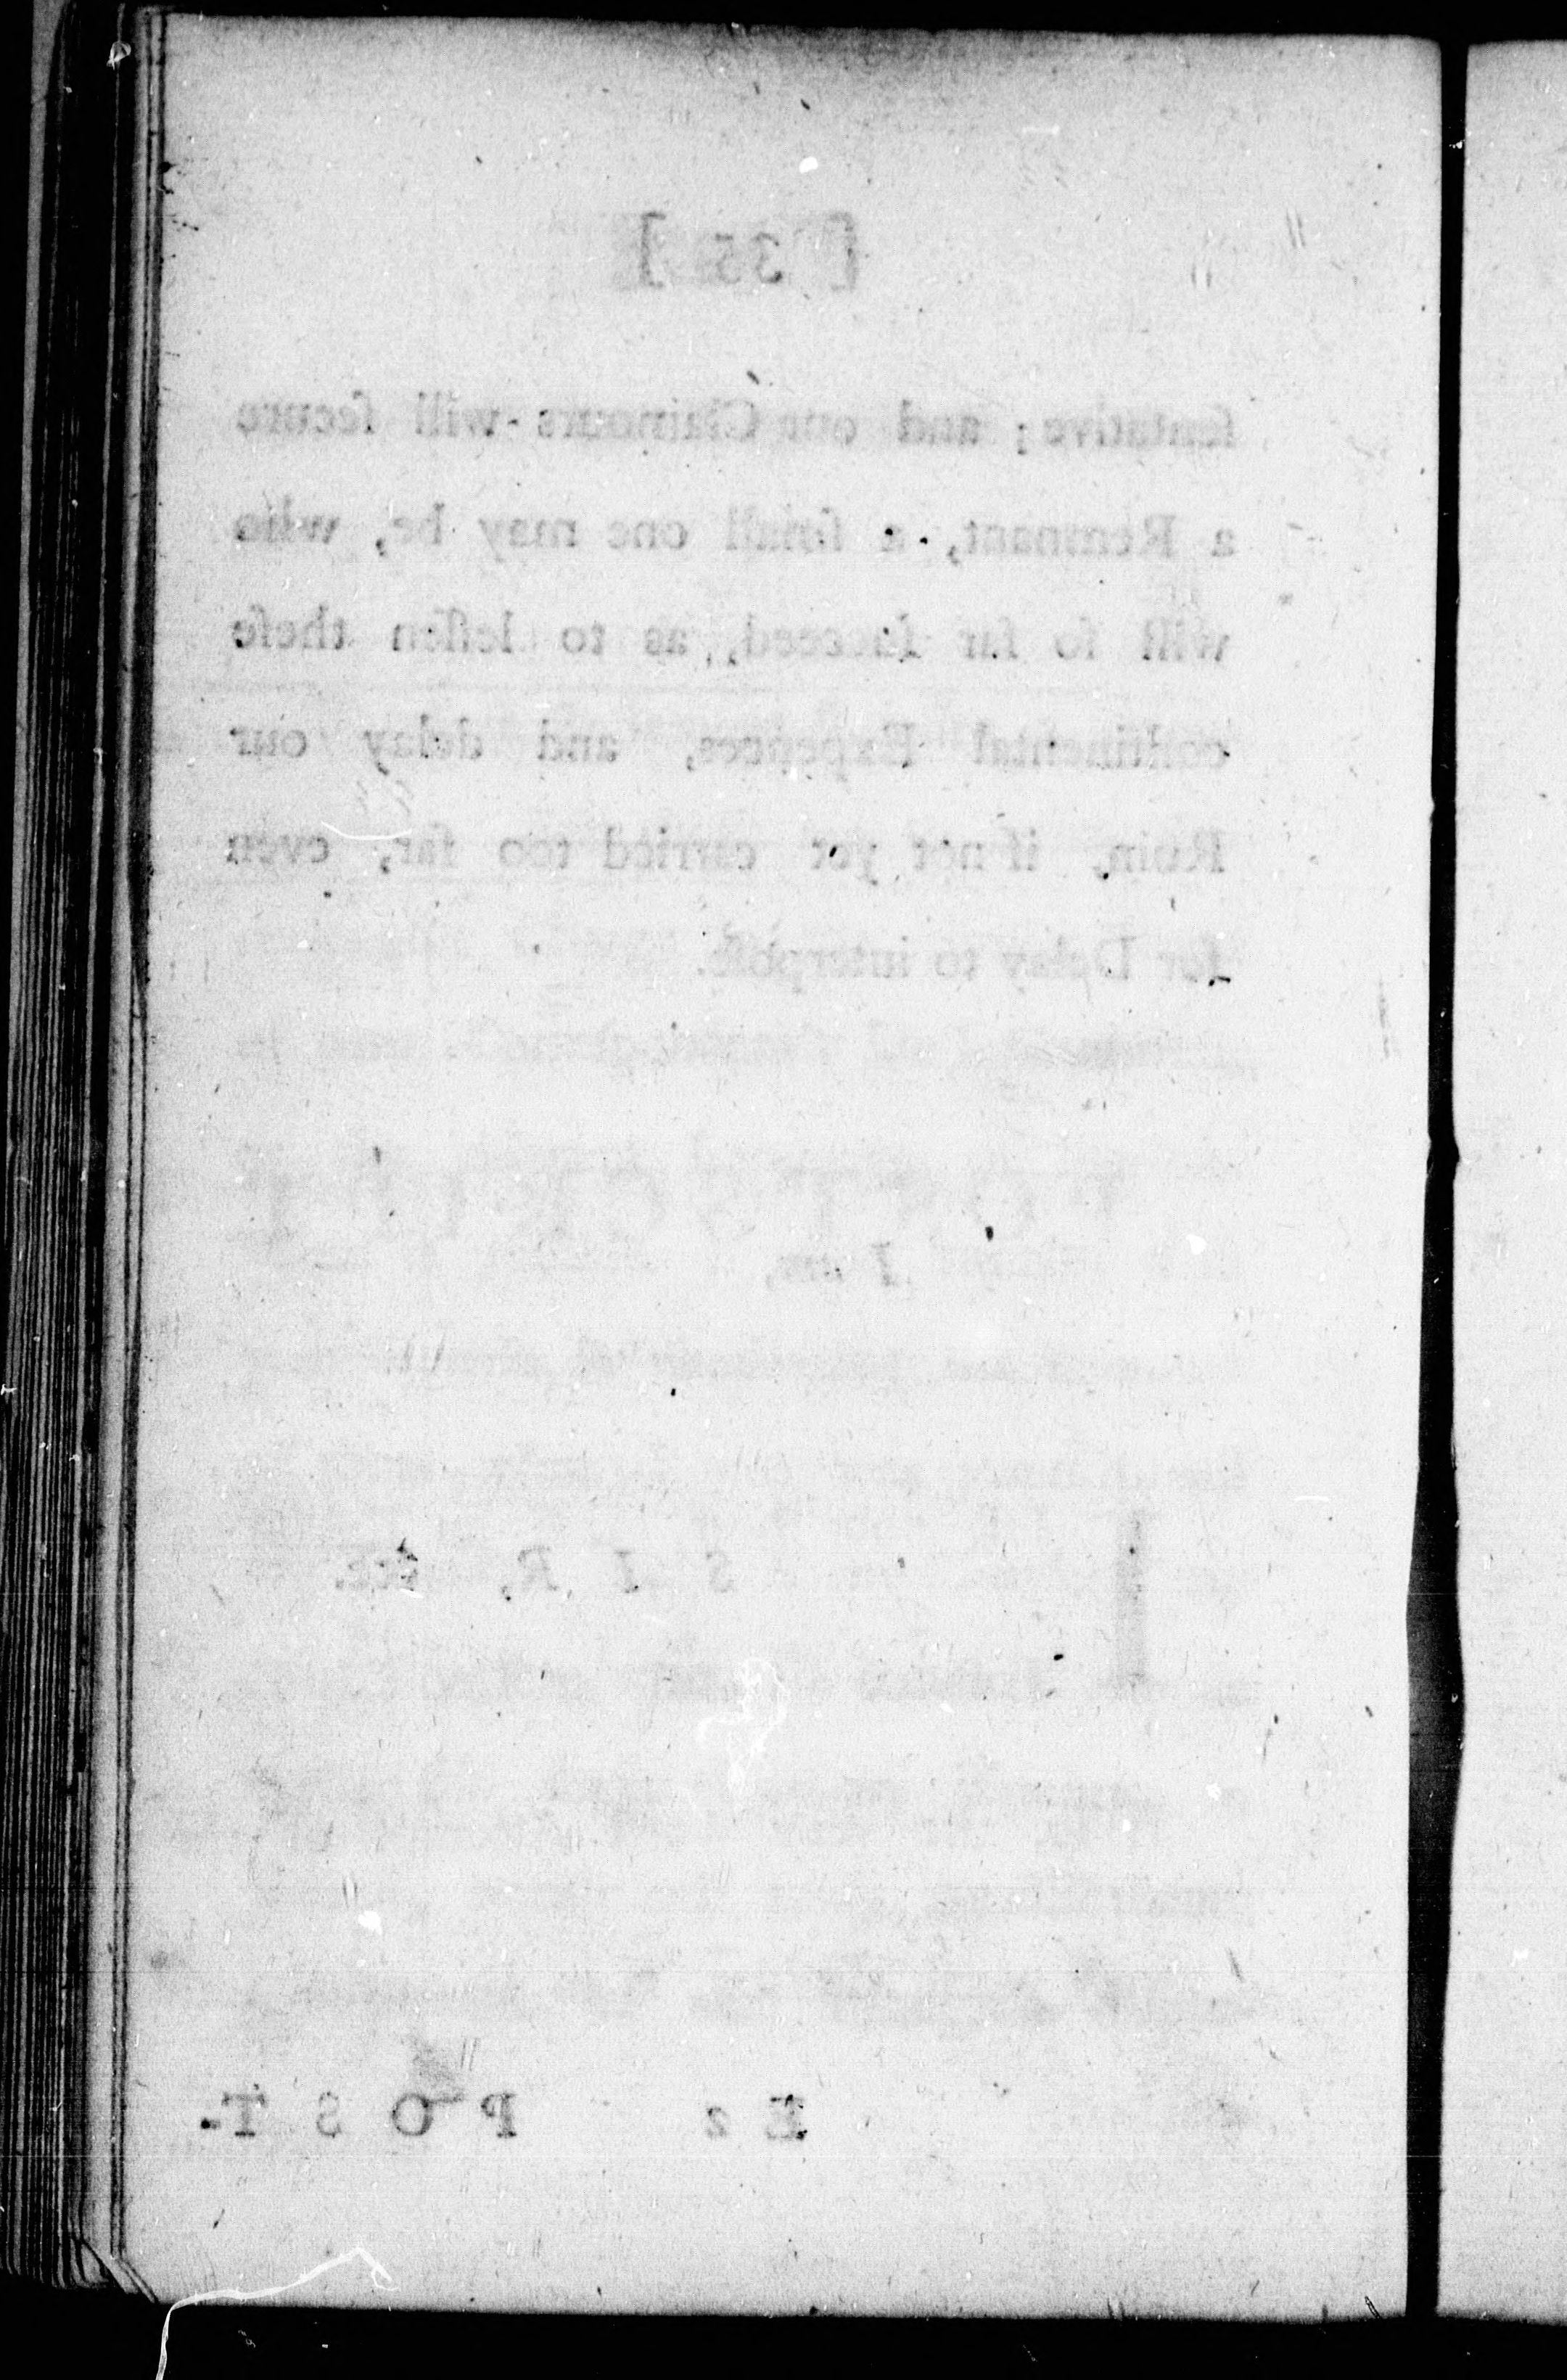 [ 35 ]
ſentative; and our Clamours will ſecure
a Remnant, a ſmall one may be, who
will ſo far ſucceed, as to leſſen theſe
continental Expences, and delay our
Ruin, if not yet carried too far, even
for Delay to interpoſe.
I am,
S I R, &c.
E 2 P O S T-